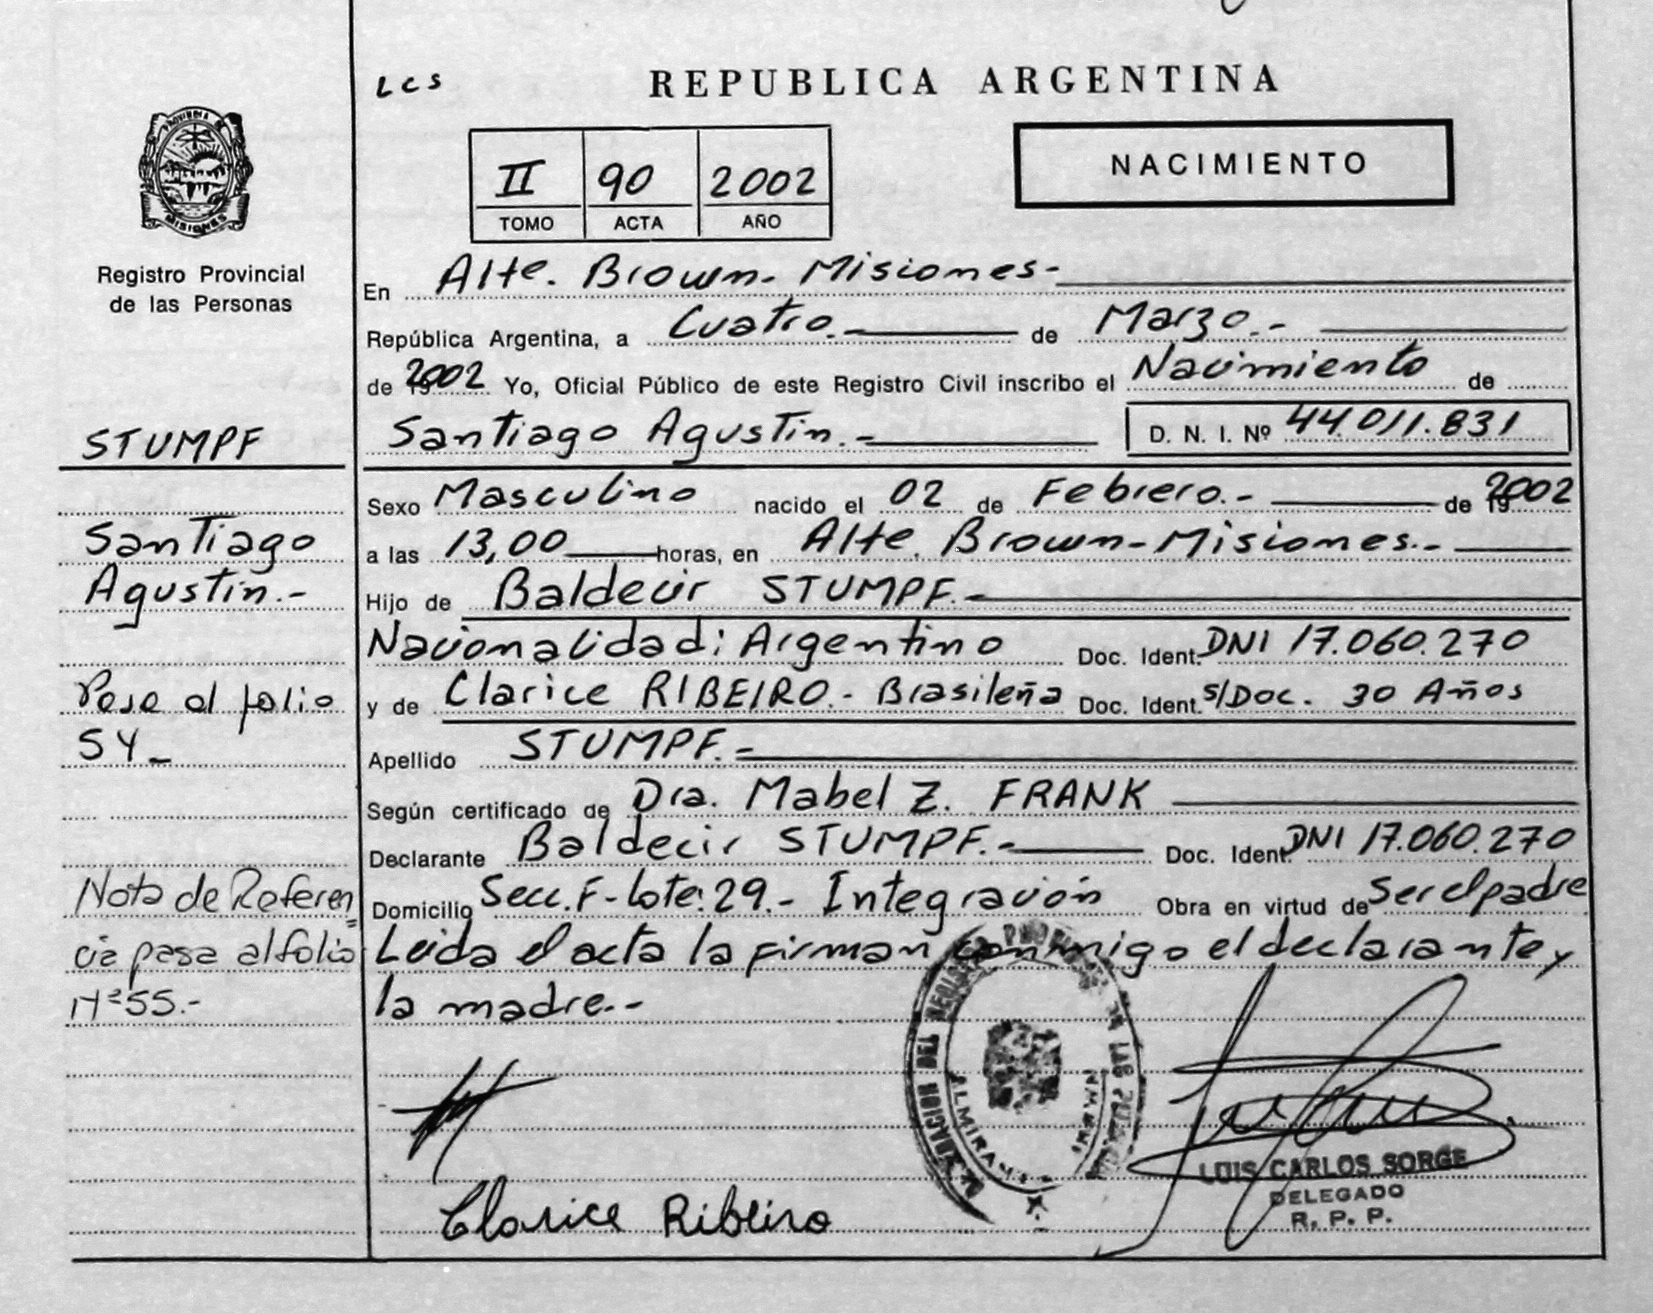 LCS
REPUBLICA ARGENTINA
PROVINCIA DE
MISIONES
II 90 2002
TOMO ACTA AÑO
NACIMIENTO
Registro Provincial
de las Personas
En Alte. Brown.- Misiones.-
República Argentina, a Cuatro.- de Marzo.-
de 2002 Yo, Oficial Público de este Registro Civil inscribo el Nacimiento de
Santiago Agustín.- D. N. I. Nº 44.011.831
STUMPF
Sexo Masculino nacido el 02 de Febrero.- de 2002
Santiago
a las 13,00 horas, en Alte. Brown-Misiones.-
Agustín.-
Hijo de Baldecir STUMPF.-
Nacionalidad: Argentino Doc. Ident. DNI 17.060.270
Pase al folio
y de Clarice RIBEIRO.- Brasileña Doc. Ident. s/Doc. 30 Años
54-
Apellido STUMPF.-
Según certificado de Dra. Mabel Z. FRANK
Declarante Baldecir STUMPF.- Doc. Ident. DNI 17.060.270
Nota de Referen
Domicilio Secc.F-Lote:29.- Integración Obra en virtud de Ser el padre
cia pasa al folio
Leida el acta la firman conmigo el declarante y
Nº55.-
la madre.-
Clarice Ribeiro
LUIS CARLOS SORGE
DELEGADO
R. P. P.